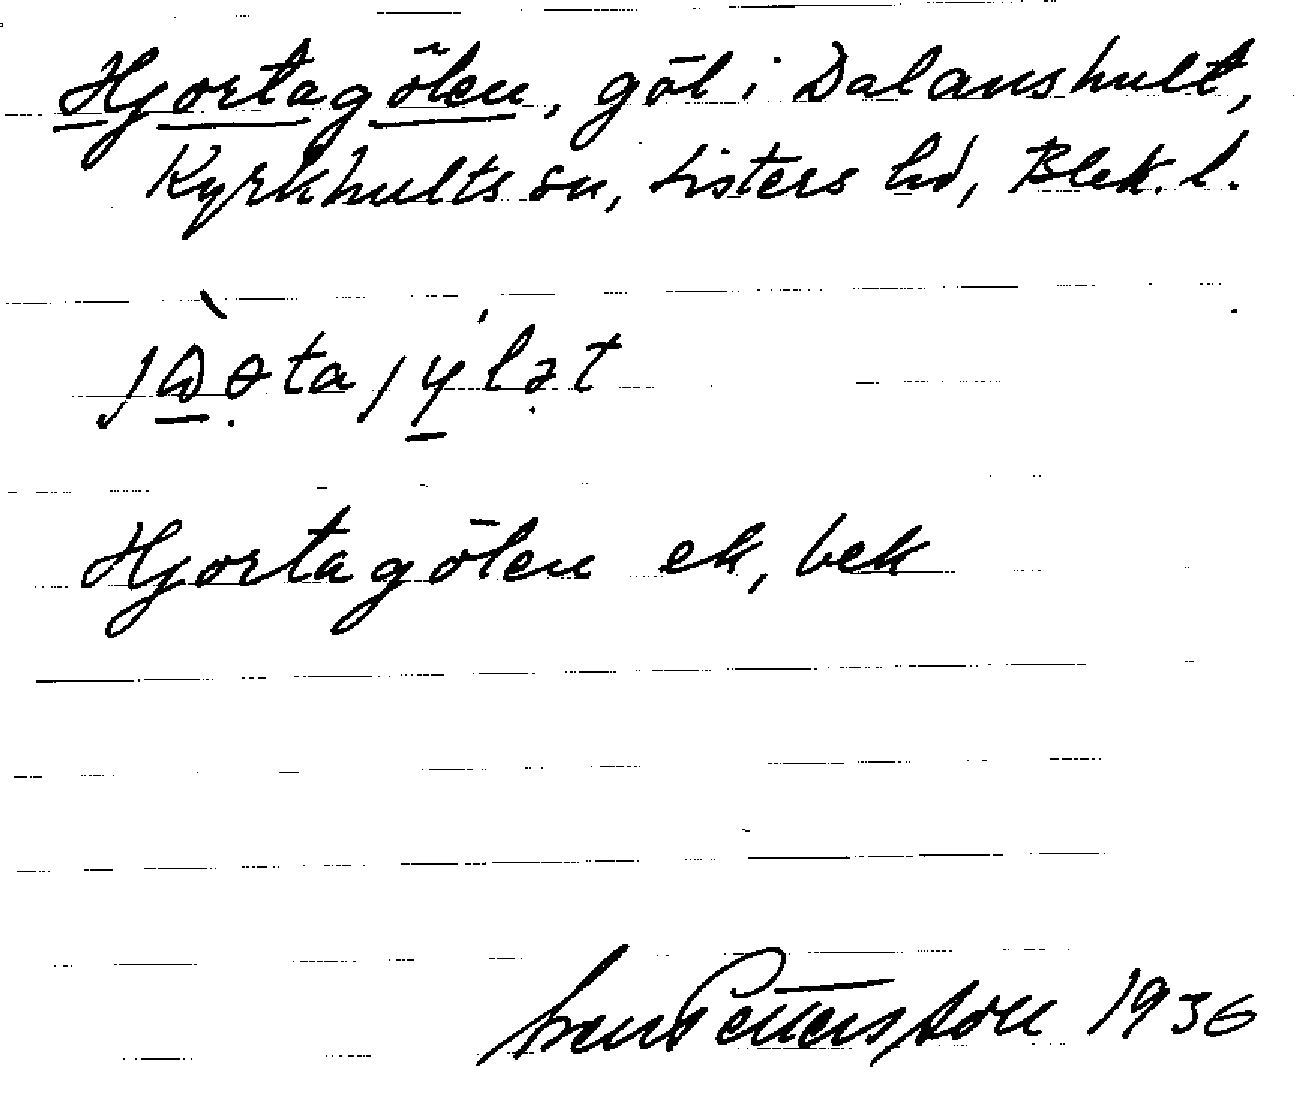 Hjortagölen, göl i Dalanshult,
Kyrkhults sn, Listers hd, Blek. l.
Hjortagölen ek, bek
Sven Pettersson 1936